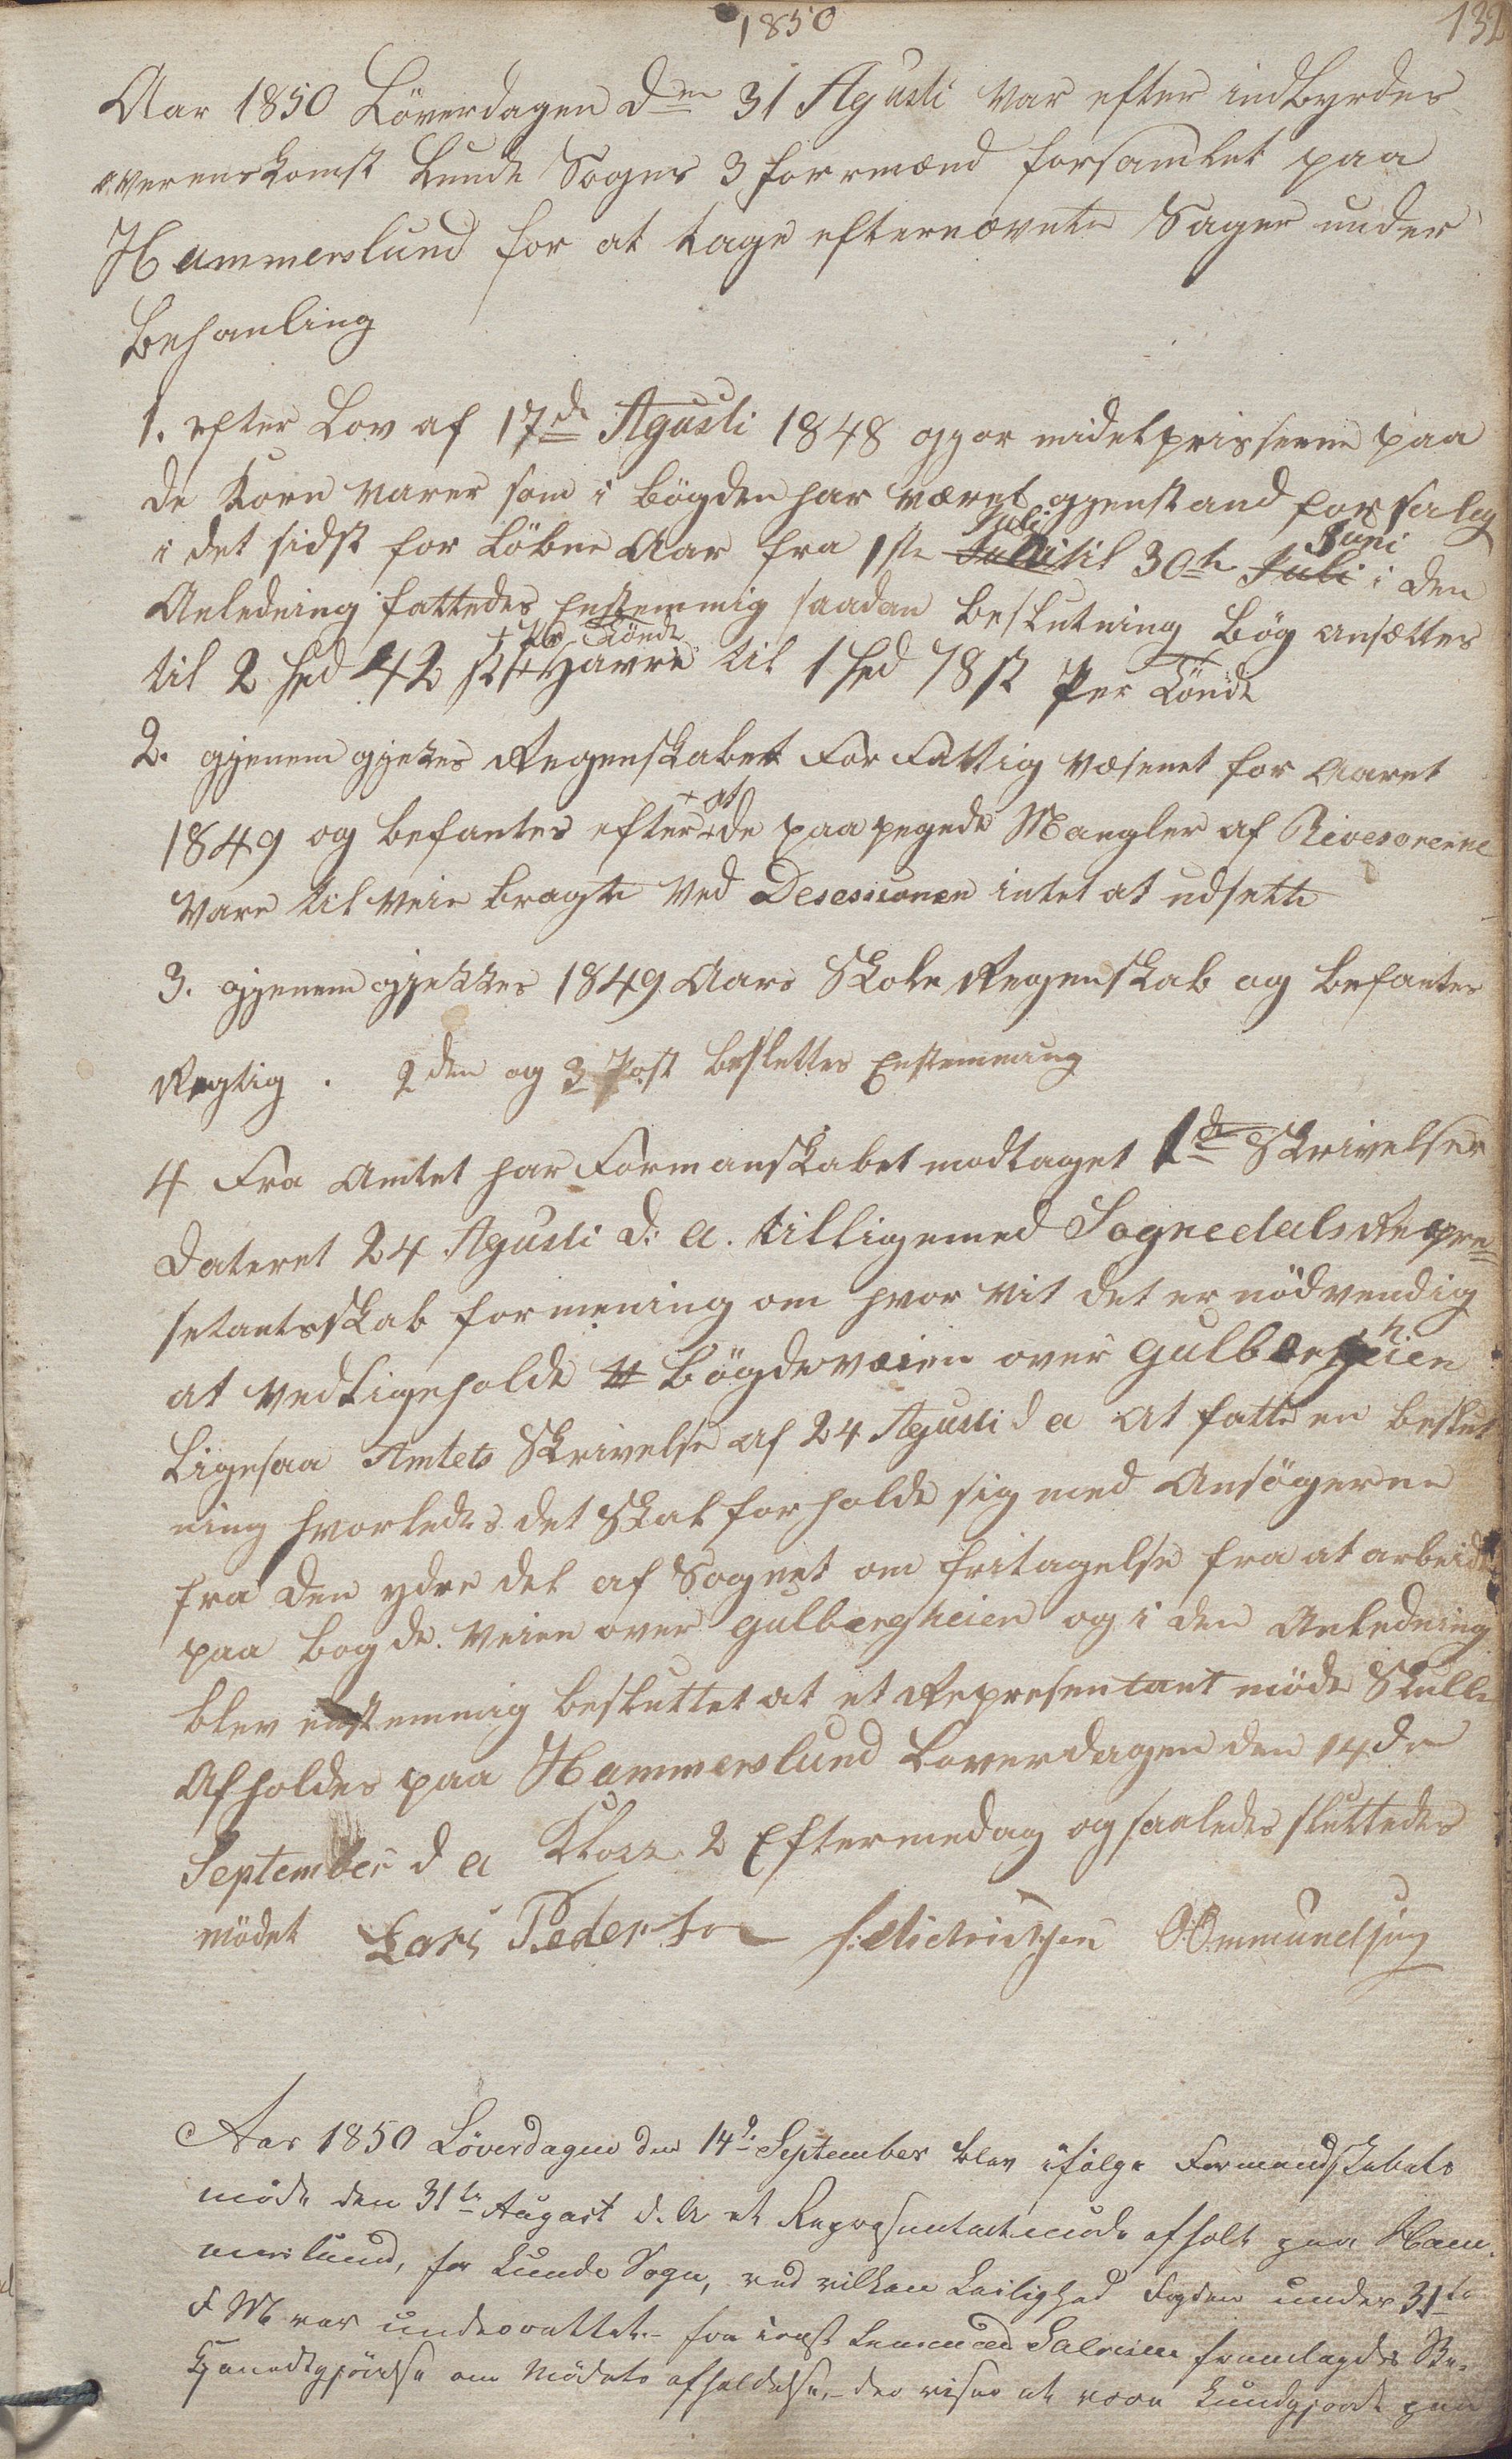 1850
132
Aar 1850 Löverdagen dn 31 Agusti var efter indbyrdes
overenskomst Lunde Sogns 3 formænd forsamlet paa
Hammerslund for at tage efternævnte Sager under
Behanling
1. efter Lov af 17de Agusti 1848 ogsor midelprisserne paa
de Korn varer som i bögden har været gjenstand for salg
i det sidst for Löbne Aar fra 1ste Juli til 30te Juni i den
Anledning fattedes Enstemmig saadan beslutning bög ansættes
til 2 spd 42 sk pr Tönde Havre til 1 spd 78 sk Per Tönde
2. gjenem gjekes Regenskabet For Fattig væsenet for Aaret
1849 og befantes efter at de paapegede Mangler af Rivesorerne
vare til veie bragte ved Desesionen intet at udsette
3. gjenem gjekkes 1849 Aars Skole Regenskab og befantes
Regtig . 2den og 3 Post besluttes Enstemmig
4 Fra Amtet har Formanskabet modtaget 1de Skrivelser
Dateret 24 Agusti d: a. tilligemed Sognedals Repre=
setantsskab formening om hvor vit det er nödvendig
at vedligeholde Bögdeveien over Gulbergheien
Ligesaa Amtets Skrivelse af 24 Agusti d a at fatte en beslut
ning hvorledes det Skal forholde sig med Ansögerne
fra den ydre del af Sognet om fritagelse fra at arbeide
paa bogde. Veien over gulbergheien og i den Anledning
blev enstemmig besluttet at et Representant möde Skulle
Afholdes paa Hammerslund Loverdagen den 14de
September d a Klokk 2 Eftermedag og saaledes sluttedes
mödet Lars Pederson S. Didriksen O. Ommundsen
Aar 1850 Löverdagen den 14de September blev ifölge Formandskabets
möde den 31te August d. A et Repræsentantmöde afholt paa Ham
merslund, for Lunde Sogn, ved vilken Leilighed Fogden under 31te
F M var underrettet. fra Lensmand Salvesen fremlagdes Be-
kjendtgjörelse om Mödets afholdelse, der viser at være kundgjordt paa